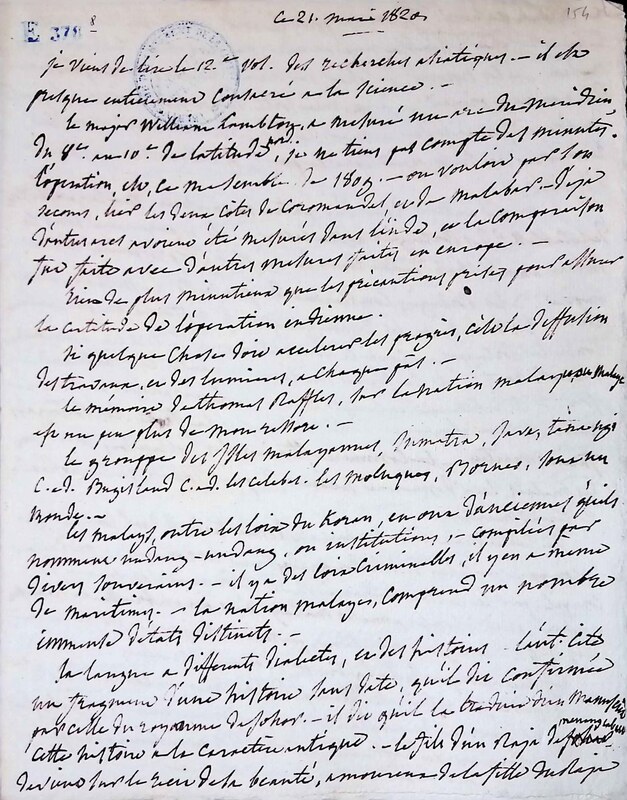 E 378 8
ce 21. mars 1820.
154
je viens de lire le 12.e vol. des recherches asiatiques. — il est
presque entierement consacré a la science. —
le major William Lambton, a mesuré un arc du méridien
du 8e. au 10e. de latitude nord, je ne tiens pas compte des minutes.
l'opération, est, ce me semble, de 1809 — on vouloit par son
secours, lier les deux côtes de coromandel et de malabar. — déja
d'autres arcs avoient été mesurés dans l'inde, et la comparaison
fut faite avec d'autres mesures faites en europe. —
rien de plus minutieux que les précautions prises pour assurer
la certitude de l'opération indienne.
si quelque chose doit accelerer les progrès, c'est la diffusion
des travaux, et des lumieres, a chaque pas. —
le mémoire de thomas Raffles, sur la nation malaye,
est un peu plus de mon ressort. —
le grouppe des isles malayannes, Sumatra, Java,
c.a.d. Bugisland c.a.d. les celebes. les moluques, Borneo, sous un
monde. —
les malays, outre les loix du Koran, en ont d'anciennes qu'ils
nomment undang-undang, ou institutions, — compilées par
divers souverains. — il y a des loix criminelles, il y en a même
de maritimes. — la nation malaye, comprend un nombre
immense d'états distincts. —
la langue a differents dialectes, et des histoires. l'aut. cite
un fragment d'une histoire sans date, qu'il dit confirmée
par celle du royaume de Johor — il dit qu'il la traduit d'un manuscrit
cette histoire a le caractere antique. — le fils d'un Raja de menangcabou
devient sur le recit de la beauté, amoureux de la fille du Raja